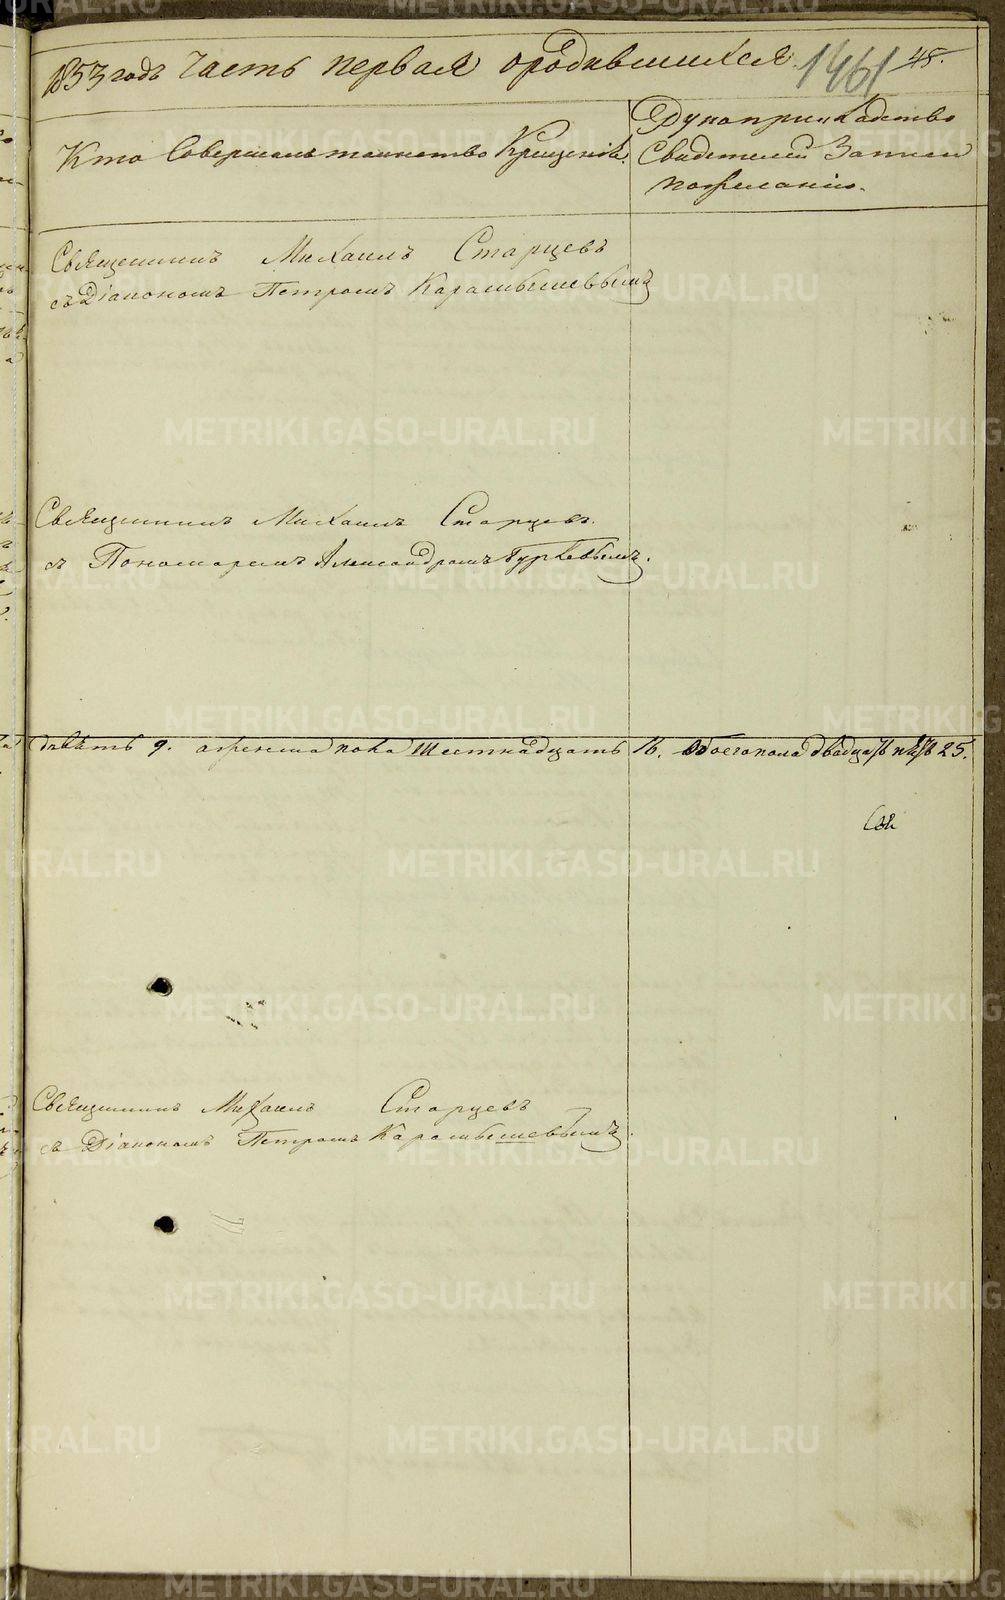 1853 годъ Часть первая ородившихся. 1461 48.
Кто Совершалъ таинство Крещенія.
Рукоприкладство
Свидетелей Записи
пожеланію.
Священникъ Михаилъ Старцевъ
съ Діакономъ Петромъ Карамышевымъ
Священникъ Михаилъ Старцевъ.
съ Пономаремъ Александромъ Гурьевымъ.
девять 9. аженска пола Шестнадцать 16. обоегопола двадцать пять 25.
Священникъ Михаилъ Старцевъ
съ Діакономъ Петромъ Карамышевымъ.
METRIKI.GASO-URAL.RU